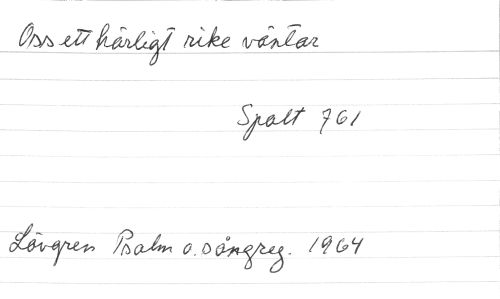 Oss ett härligt rike väntar
Spalt 761
Lövgren Psalm o. sångreg. 1964